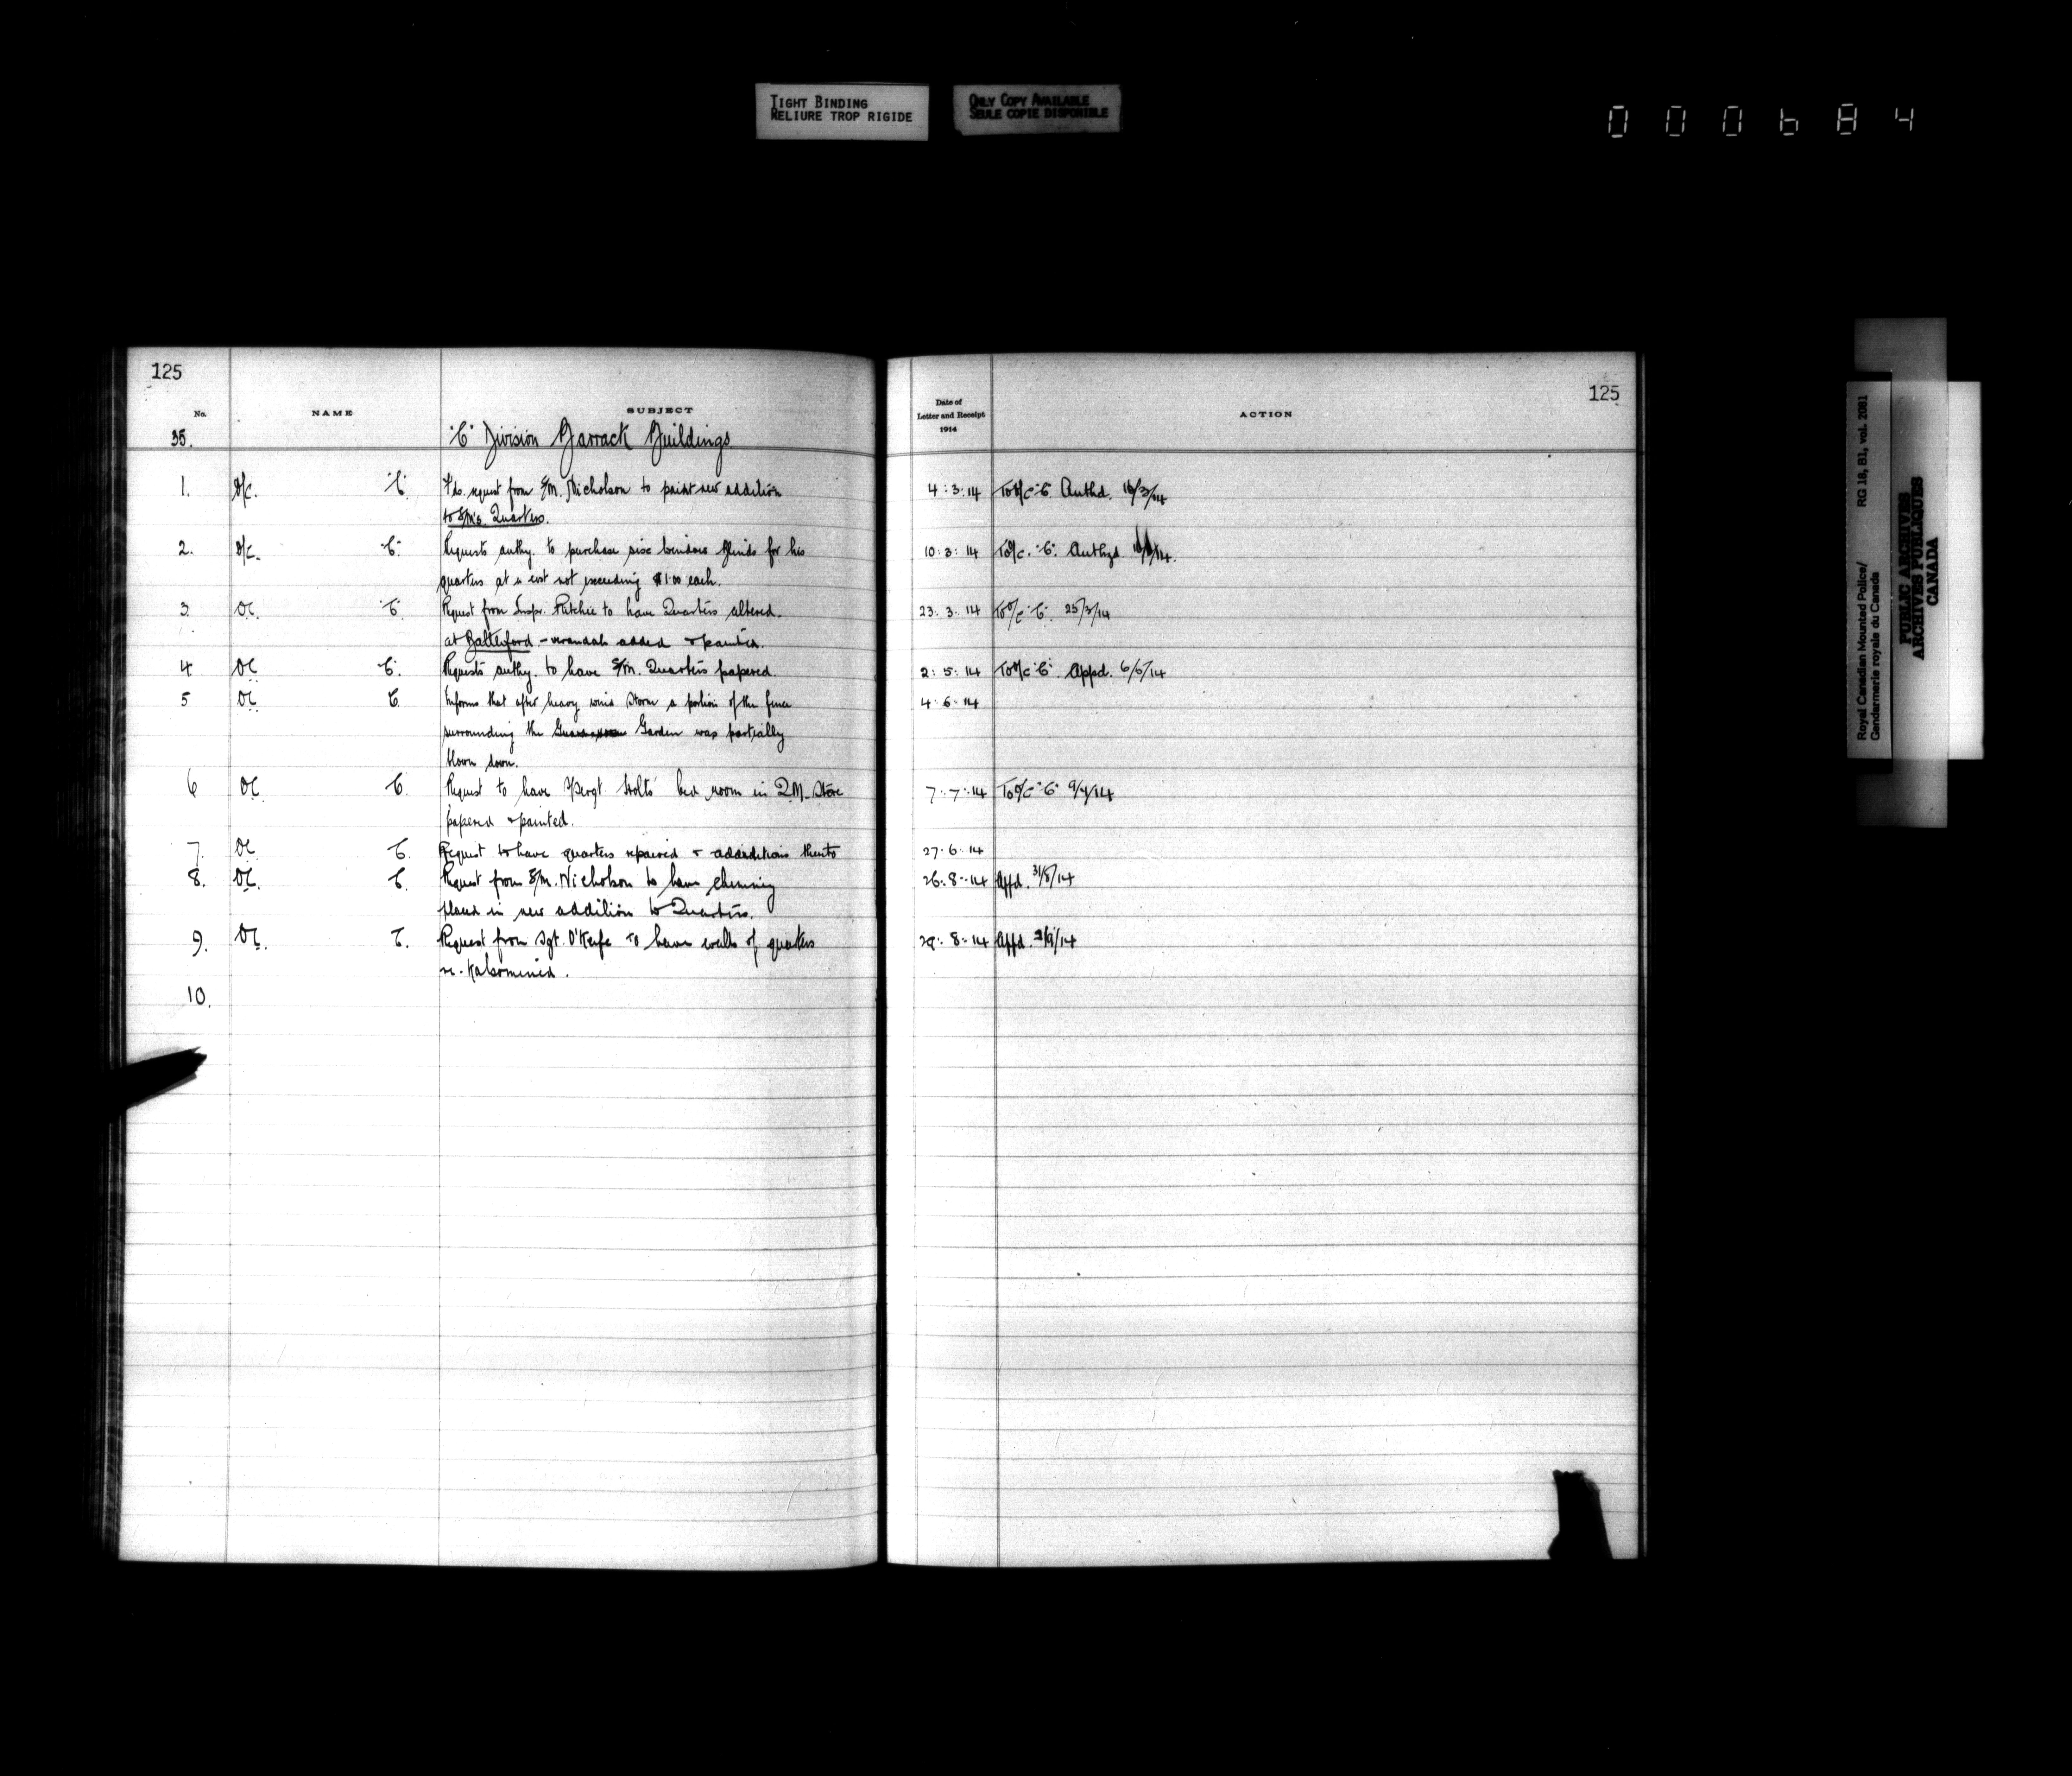 TIGHT BINDING
RELIURE TROP RIGIDE
ONLY COPY AVAILABLE
SEULE COPIE DISPONIBLE
000684
125
No. NAME SUBJECT
35. "C" Division Barrack Buildings.
1. O/C. "C" Fds. request from S/M. Nicholson to paint new addition
to S/M's. Quarters.
2. O/C. "C" Requests authy. to purchase six window blinds for his
quarters at a cost not exceeding $1.00 each.
3. OC. "C" Request from Inspr. Ritchie to have Quarters altered.
at Battleford - verandah added & painted.
4 OC "C". Requests authy. to have S/M. Quarters papered.
5 OC C Informs that after heavy wind storm a portion of the fence
surrounding the Garden was partially
blown down.
6 OC C. Request to have S/Sergt. Holts' bed room in Q.M. Store
papered & painted.
7. OC C. Request to have quarters repaired & addditions thereto
8. OC. C. Request from S/M. Nicholson to have chimney
placed in new addition to Quarters.
9. OC. C. Request from Sgt. O'Keefe to have walls of quarters
re-Kalsomined.
10.
125
Date of
Letter and Receipt
1914
ACTION
4:3:14 To O/C "C" Authd. 16/3/14
10:3:14 To O/C. "C". Authzd. /14.
23.3.14 To O/C "C" 25/3/14
2:5:14 To O/C "C" Appd. 6/5/14
4:6:14
7:7:14 To O/C "C" 9/7/14
27:6:14
26:8:14 Appd. 31/8/14
29:8:14 Appd. 2/9/14
Royal Canadian Mounted Police/ RG 18, B1, vol. 2081
Gendarmerie royale du Canada
PUBLIC ARCHIVES
ARCHIVES PUBLIQUES
CANADA